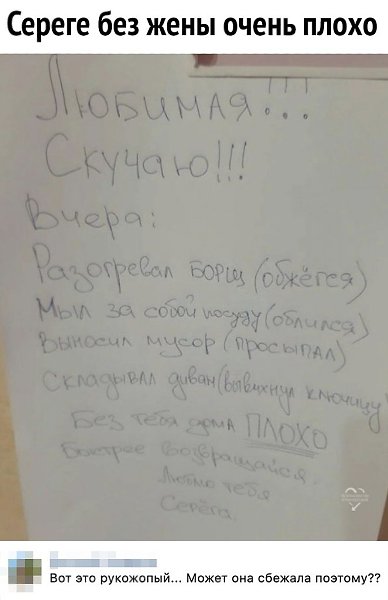 Сереге без жены очень плохо
Любимая!!!
Скучаю!!!
Вчера:
Разогревал борщ (обжёгся)
Мыл за собой посуду (облился)
Выносил мусор (просыпал)
Складывал диван (вывихнул ключицу
Без тебя дома ПЛОХО
Быстрее возвращайся.
Люблю тебя
Серёга.
Вот это рукожопый... Может она сбежала поэтому??